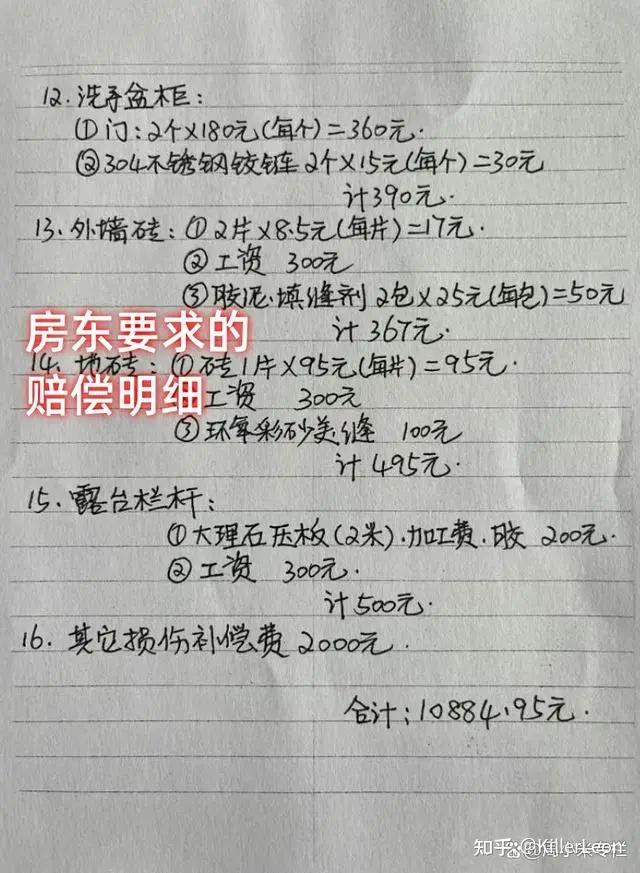 12. 洗手盆柜：
①门：2个×180元(每个)＝360元.
②304不锈钢铰链 2个×15元(每个)＝30元
计390元.
13. 外墙砖：①2片×8.5元(每片)＝17元.
②工资 300元
③胶泥.填缝剂 2包×25元(每包)＝50元
计367元.
房东要求的
14. 地砖：①砖1片×95元(每片)＝95元.
赔偿明细
工资 300元
③环氧彩砂美缝 100元
计495元.
15. 露台栏杆：
①大理石压板(2米).加工费.胶 200元.
②工资 300元.
计500元.
16. 其它损伤补偿费2000元.
合计：10884.95元.
知乎 @KillerLeon